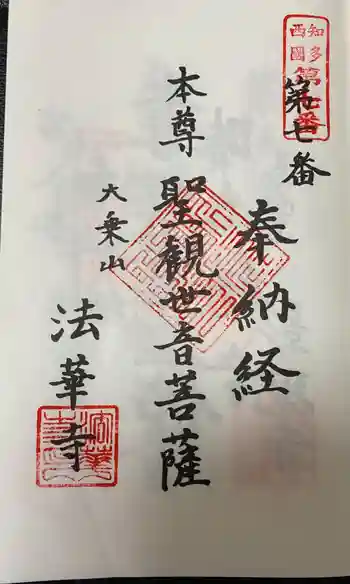 知多
西國
第七番
第七番
奉納経
本尊
聖観世音菩薩
大乗山
法華寺